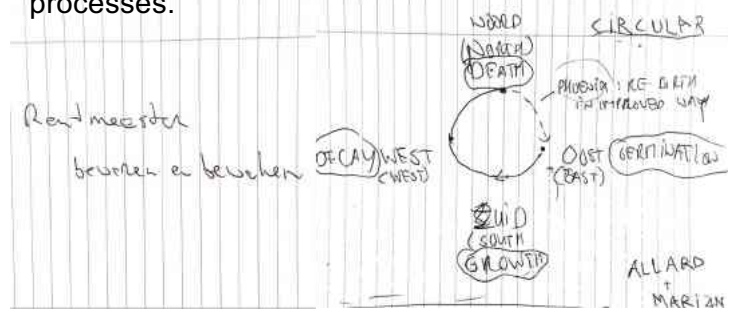 processes.
Rentmeester
bewerken en bewaken
NOORD
(NORTH)
DEATH
CIRCULAR
PHOENIX : RE-BIRTH
IN IMPROVED WAY
DECAY WEST
(WEST)
OOST GERMINATION
(EAST)
ZUID
(SOUTH
GROWTH
ALLARD
+
MARIAN